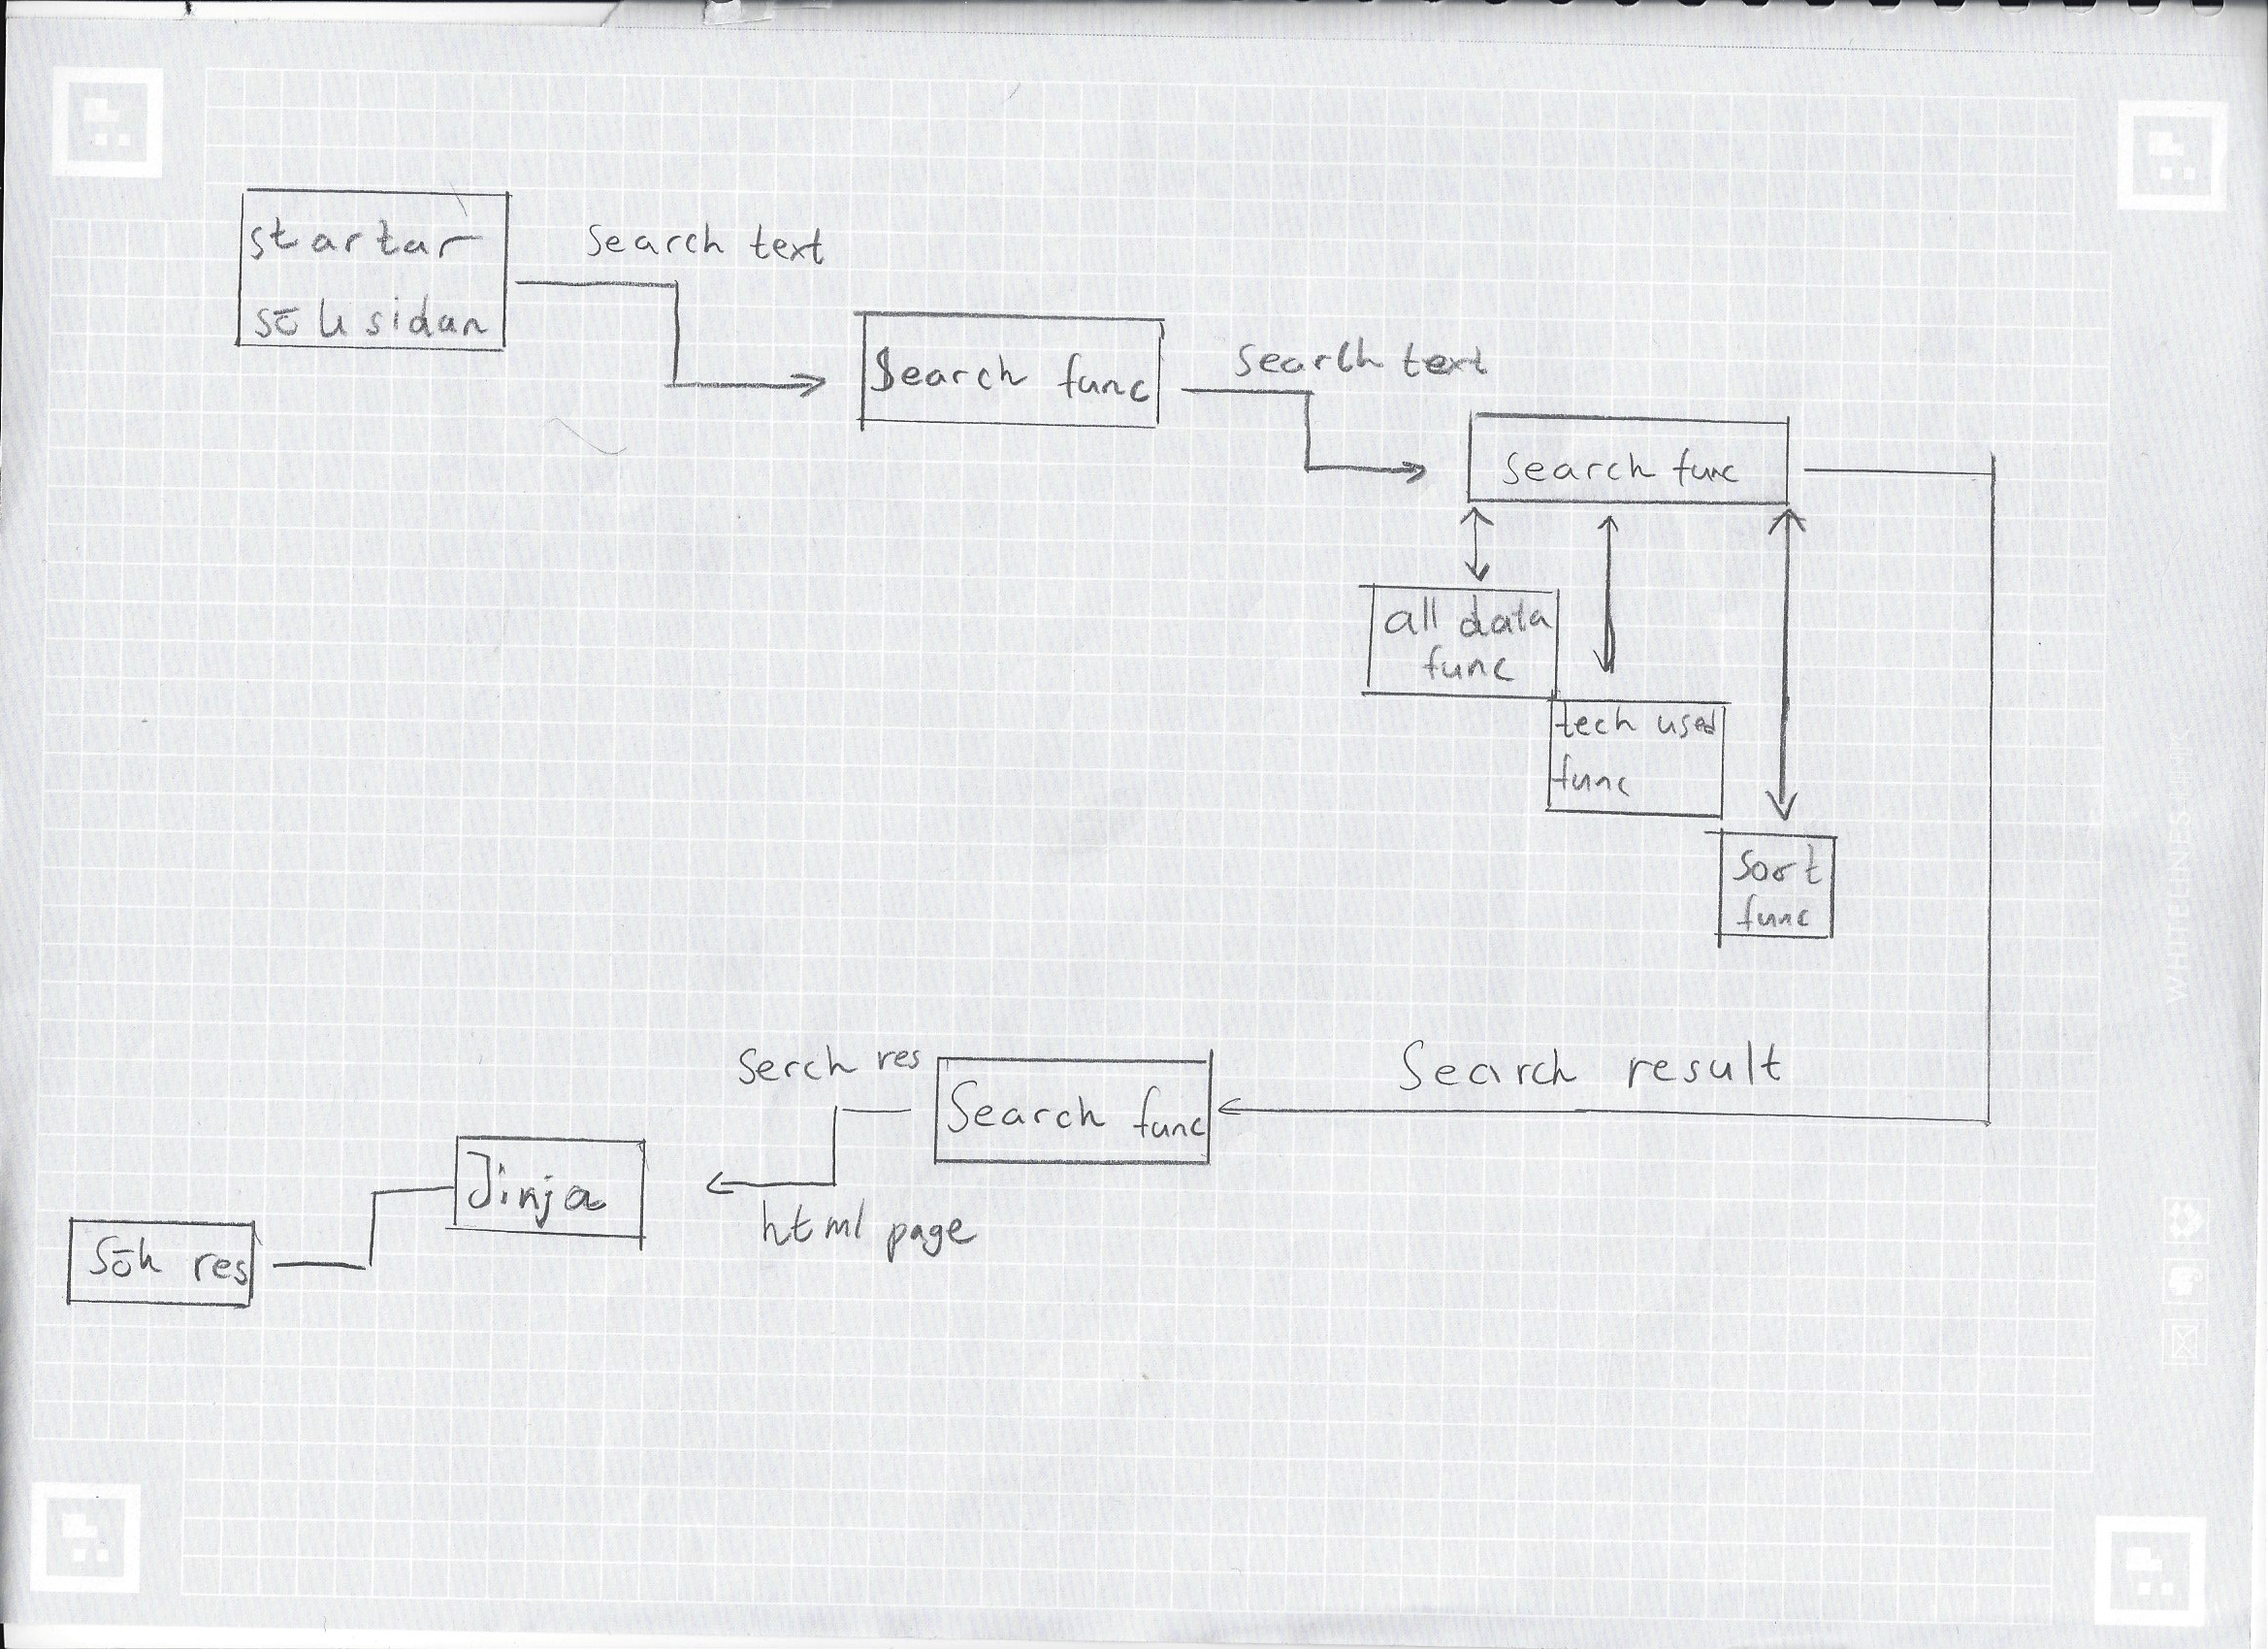 startar
söksidan
Search text
Search func
Search text
Search func
all data
func
tech used
func
Sort
func
Search result
Search func
Serch res
html page
Jinja
Sök res
WHITELINES LINK